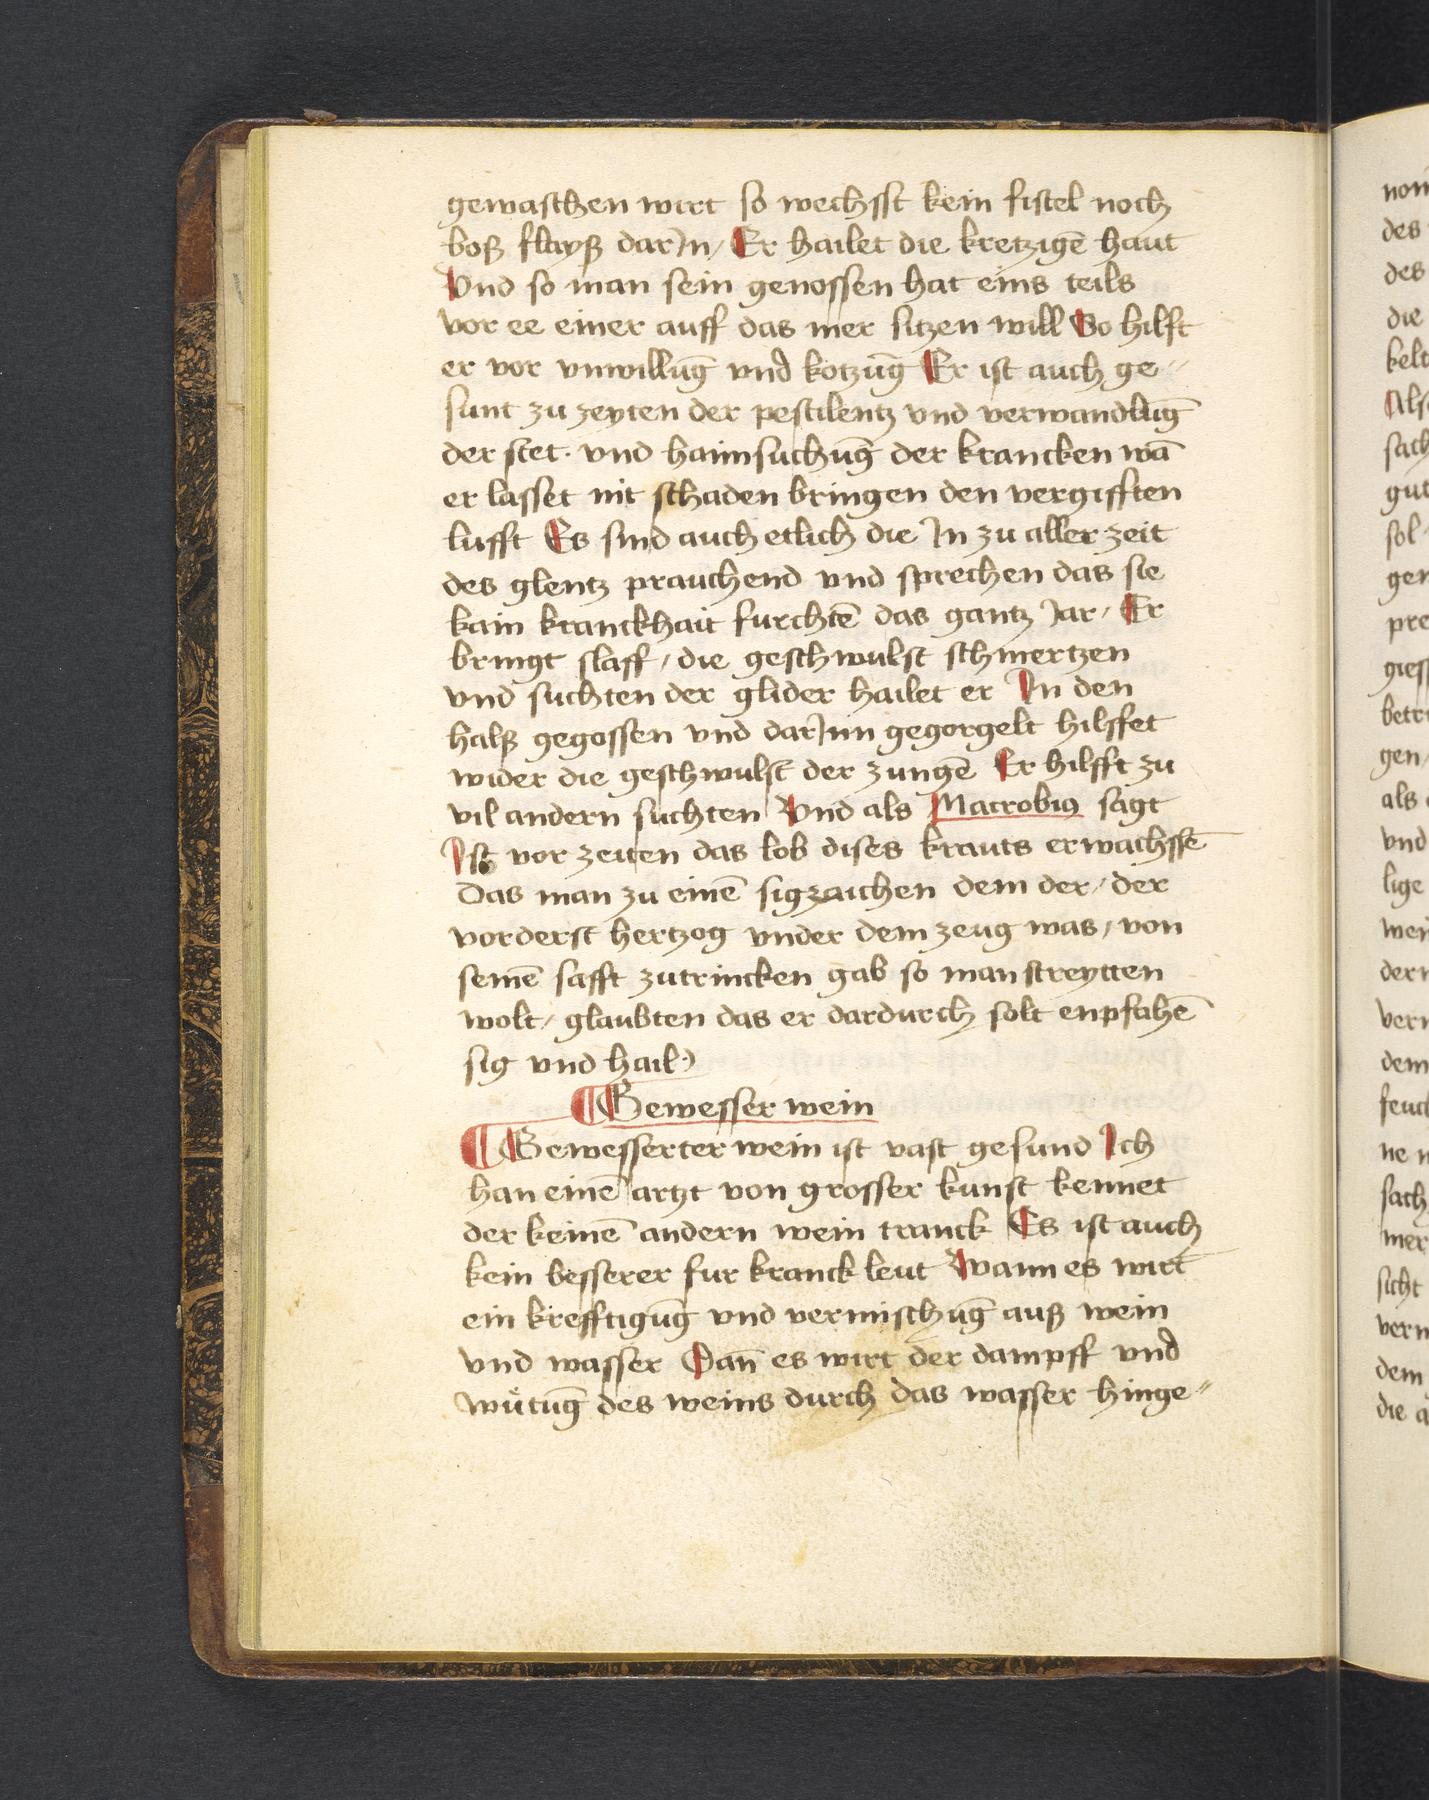 gewaschen wirt so wechsst kein fistel noch
boß flayß darJn / Er hailet die kretzigē haut
Vnd so man sein genossen hat eins teils
vor ee einer auff das mer sitzen will So hilft
er vor vnwillūg vnd kotzūg Er ist auch ge //
sunt zu zeyten der pestilentz vnd verwandlūg
der stet · vnd haimsuchūg der krancken wā
er lasset nit schaden bringen den vergifften
lufft Es sind auch etlich die Jn zu aller zeit
des glentz prauchend vnd sprechen das sie
kain kranckhait furchtē das gantz Jar / Er
bringt slaff / die geschwulst schmertzen
vnd suchten der glider hailet er Jn den
halß gegossen vnd darJnn gegorgelt hilffet
wider die geschwulst der zungē Er hilfft zu
vil andern suchten Vnd als Macrobius sagt
Jst vor zeiten das lob dises krauts erwachssē
Das man zu einē sigzaichen dem der / der
vorderst hertzog vnder dem zeug was / von
seinē safft zutrincken gab so man streytten
wolt / glaubten das er dardurch solt enpfahē
sig vnd hail
¶ Gewesser wein
¶ Gewesserter wein ist vast gesund Jch
han einē artzt von grosser kunst kennet
der keinē andern wein tranck Es ist auch
kein besserer fur kranck leut Wann es wirt
ein krefftigūg vnd vermischūg auß wein
vnd wasser Dan̄ es wirt der dampff vnd
wůtūg des weins durch das wasser hinge //
des
des
die